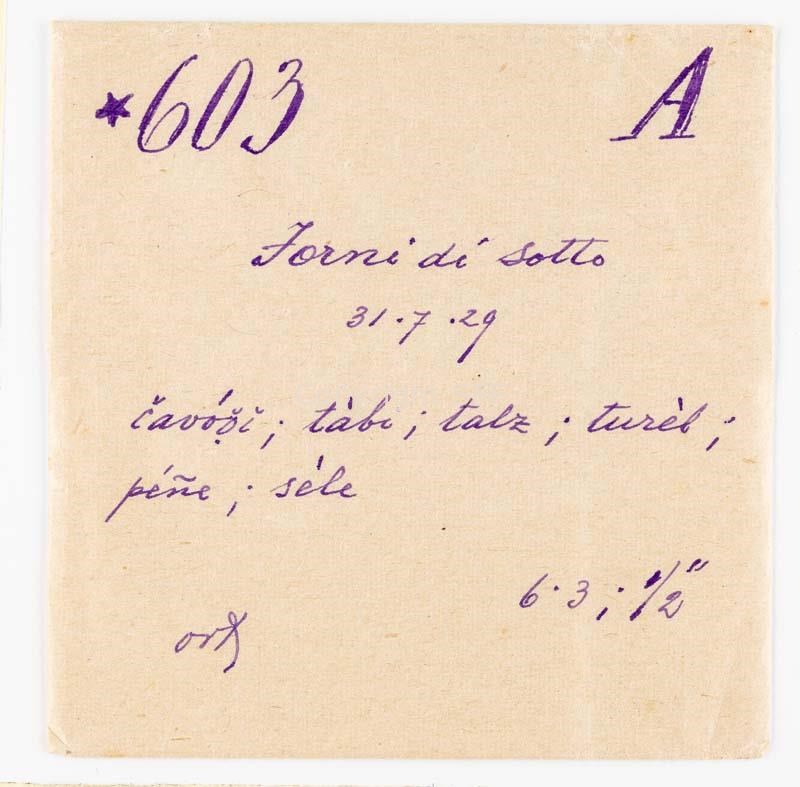 *603 A
Forni di sotto
31.7.29
tàbi; talz; turèl;
péñe; sèle
6.3; 1/2"